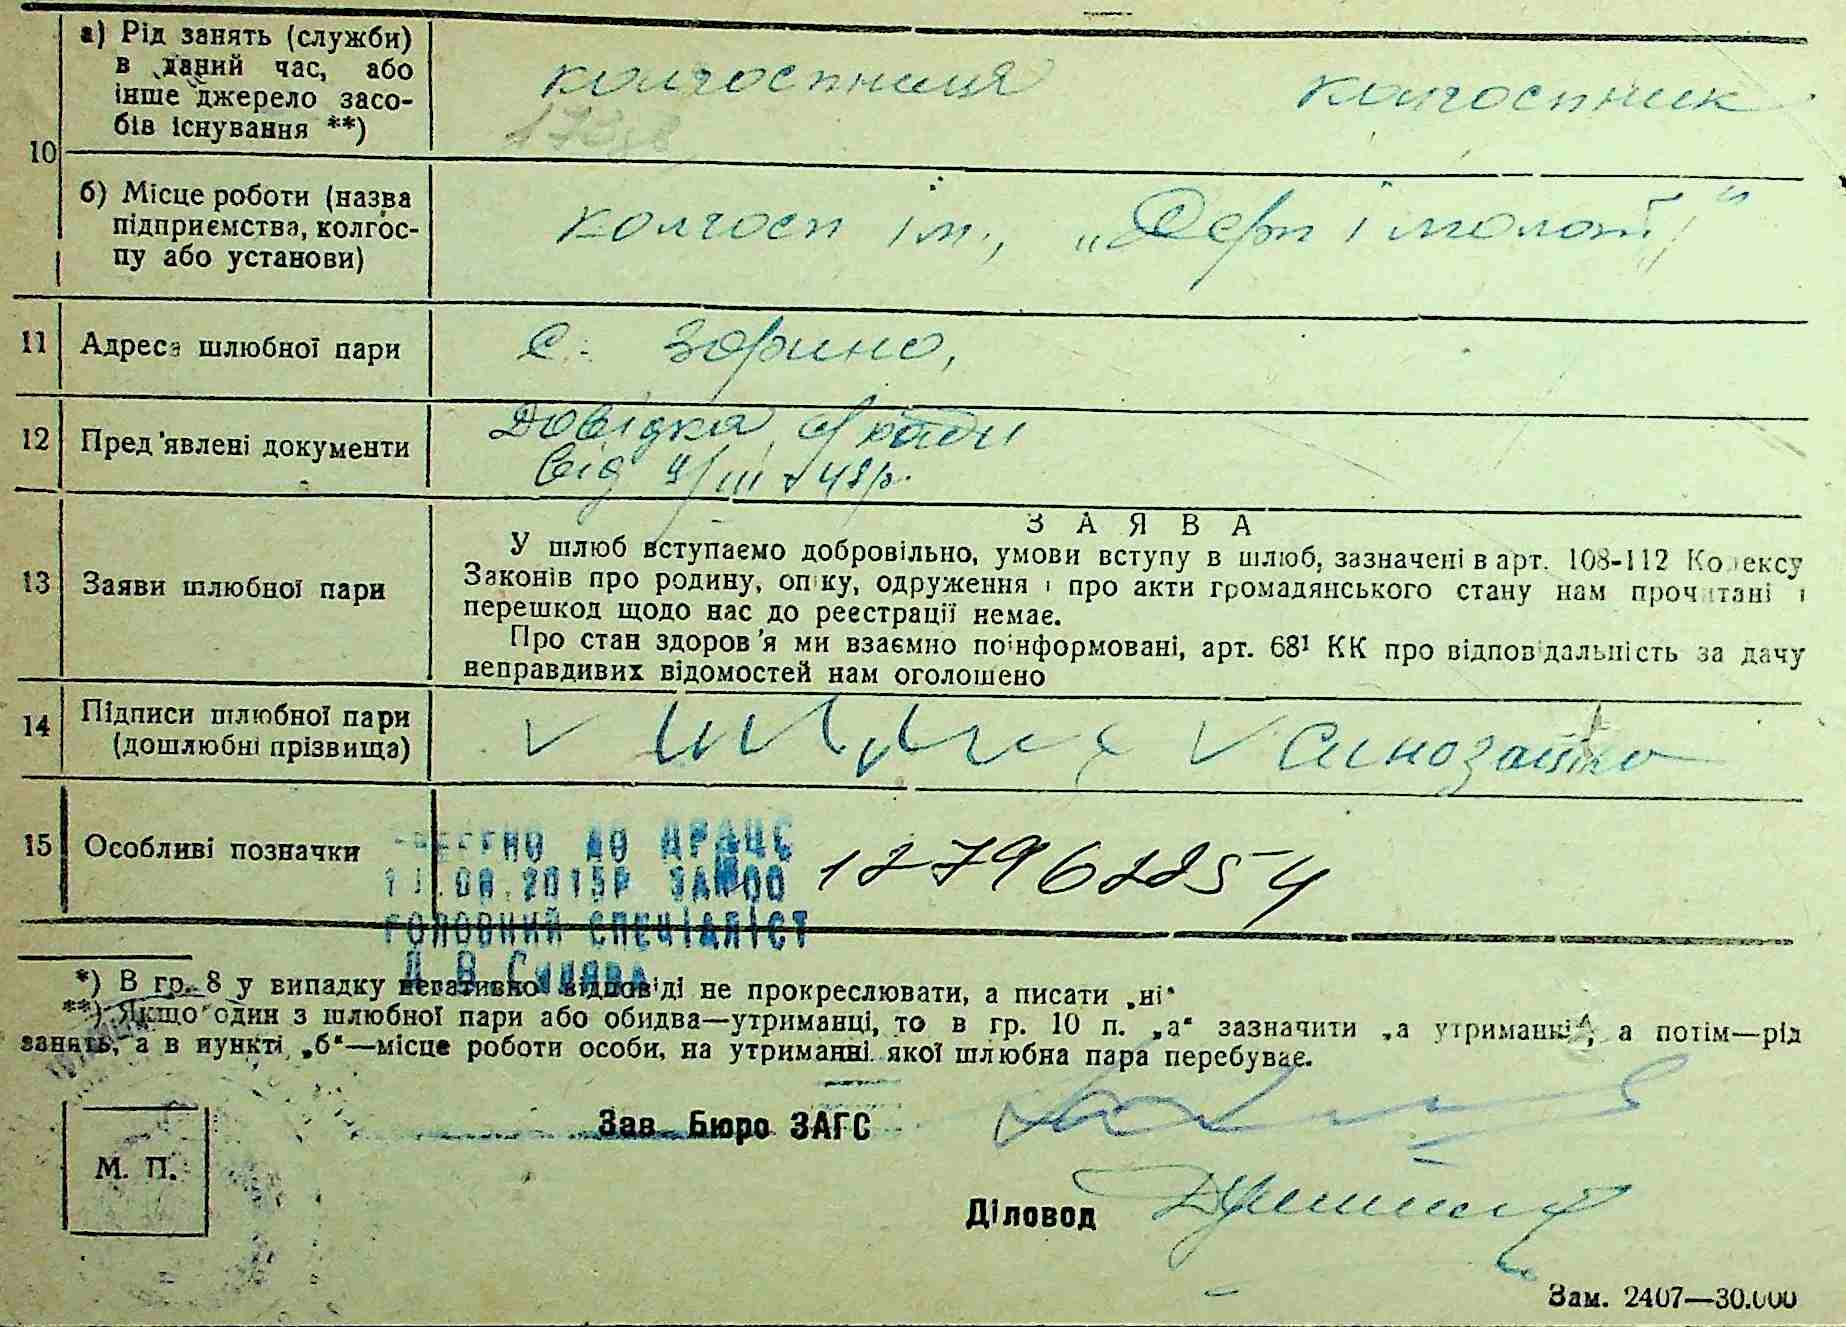 10
а) Рід занять (служби)
в даний час, або
інше джерело засо-
бів існування **)
колгоспниця колгоспник
б) Місце роботи (назва
підприємства, колгос-
пу або установи)
колгосп ім., „Серп і молот"
11 Адреса шлюбної пари
с. Зорино,
12 Пред'явлені документи
Довідка с/ради
від 9/III 48р.
13 Заяви шлюбної пари
ЗАЯВА
У шлюб вступаємо добровільно, умови вступу в шлюб, зазначені в арт. 108-112 Кодексу
Законів про родину, опіку, одруження і про акти громадянського стану нам прочитані і
перешкод щодо нас до реєстрації немає.
Про стан здоров'я ми взаємно поінформовані, арт. 68¹ КК про відповідальність за дачу
неправдивих відомостей нам оголошено
14 Підписи шлюбної пари
(дошлюбні прізвища)
15 Особливі позначки
ДО ДРАЦС
.08.2015Р
ГОЛОВНИЙ СПЕЦІАЛІСТ
*) В гр. 8 у випадку негативної відповіді не прокреслювати, а писати „ні“
**) Якщо один з шлюбної пари або обидва—утриманці, то в гр. 10 п. „а“ зазначити „а утриманні“, а потім—рід
занять, а в пункті „б“—місце роботи особи, на утриманні якої шлюбна пара перебуває.
Зав. Бюро ЗАГС
М. П.
Діловод
Зам. 2407—30.000